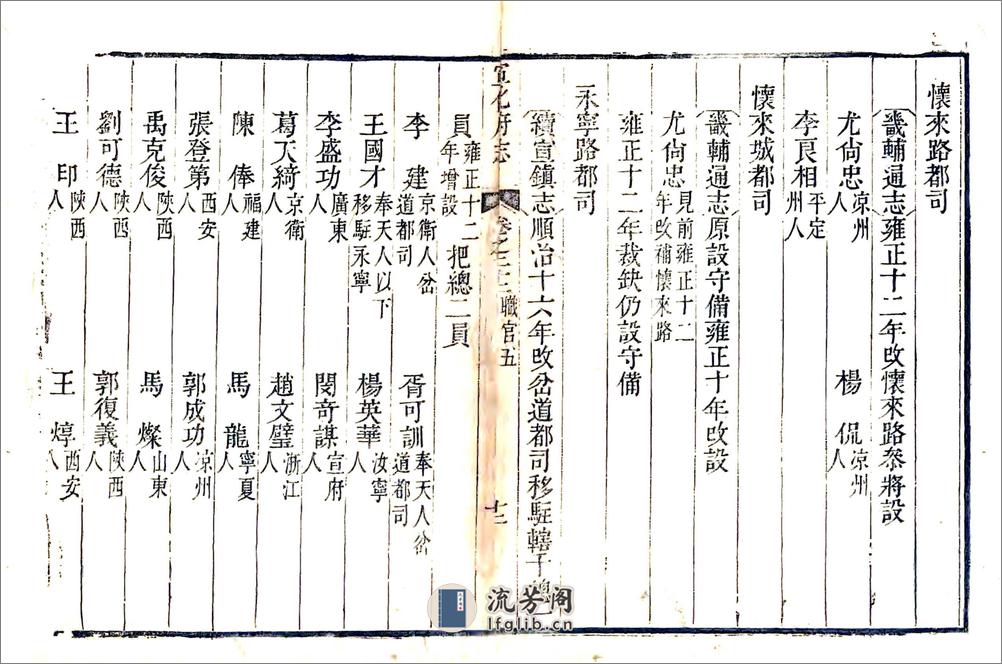 懷來路都司
畿輔通志雍正十二年改懷來路叅將設
尤尙忠凉州人 楊侃凉州人
李良相平定州人
懷來城都司
畿輔通志原設守備雍正十年改設
尤尙忠見前雍正十二年改補懷來路
雍正十二年裁缺仍設守備
永寧路都司
續宣鎮志順治十六年改岔道都司移駐轄千總
宣化府志 卷之二十二 職官五 十二
員雍正十二年增設把總二員
李建京衛人岔道都司 胥可訓奉天人岔道都司
王國才奉天人以下移駐永寧 楊英華汝寧人
李盛功廣東人 閔奇謀宣府人
葛天綺京衛人 趙文璧浙江人
陳俸福建人 馬龍寧夏人
張登第西安人 郭成功凉州人
禹克俊陝西人 馬燦山東人
劉可德陝西人 郭復義陝西人
王印陝西人 王焞西安人
流芳阁
lfglib.cn